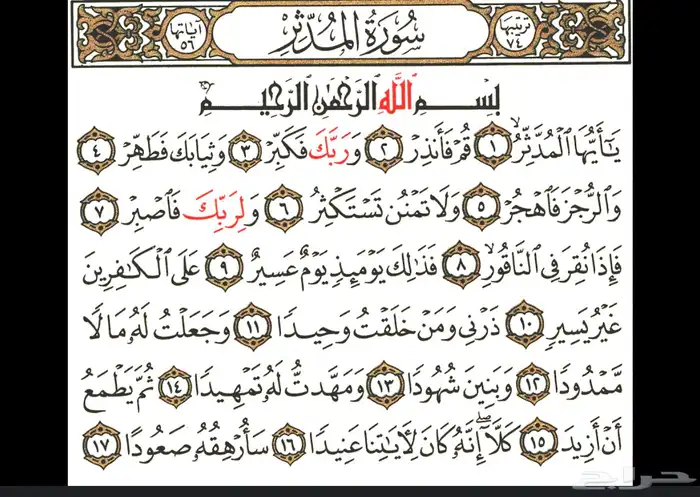 ترتيبها ٧٤ سُورَةُ المُدَّثِّر آياتها ٥٦
بِسْمِ ٱللَّهِ ٱلرَّحْمَٰنِ ٱلرَّحِيمِ
يَٰٓأَيُّهَا ٱلْمُدَّثِّرُ ١ قُمْ فَأَنذِرْ ٢ وَرَبَّكَ فَكَبِّرْ ٣ وَثِيَابَكَ فَطَهِّرْ ٤
وَٱلرُّجْزَ فَٱهْجُرْ ٥ وَلَا تَمْنُن تَسْتَكْثِرُ ٦ وَلِرَبِّكَ فَٱصْبِرْ ٧
فَإِذَا نُقِرَ فِى ٱلنَّاقُورِ ٨ فَذَٰلِكَ يَوْمَئِذٍ يَوْمٌ عَسِيرٌ ٩ عَلَى ٱلْكَٰفِرِينَ
غَيْرُ يَسِيرٍ ١٠ ذَرْنِى وَمَنْ خَلَقْتُ وَحِيدًا ١١ وَجَعَلْتُ لَهُۥ مَالًا
مَّمْدُودًا ١٢ وَبَنِينَ شُهُودًا ١٣ وَمَهَّدتُّ لَهُۥ تَمْهِيدًا ١٤ ثُمَّ يَطْمَعُ
أَنْ أَزِيدَ ١٥ كَلَّآ ۖ إِنَّهُۥ كَانَ لِءَايَٰتِنَا عَنِيدًا ١٦ سَأُرْهِقُهُۥ صَعُودًا ١٧
حراج